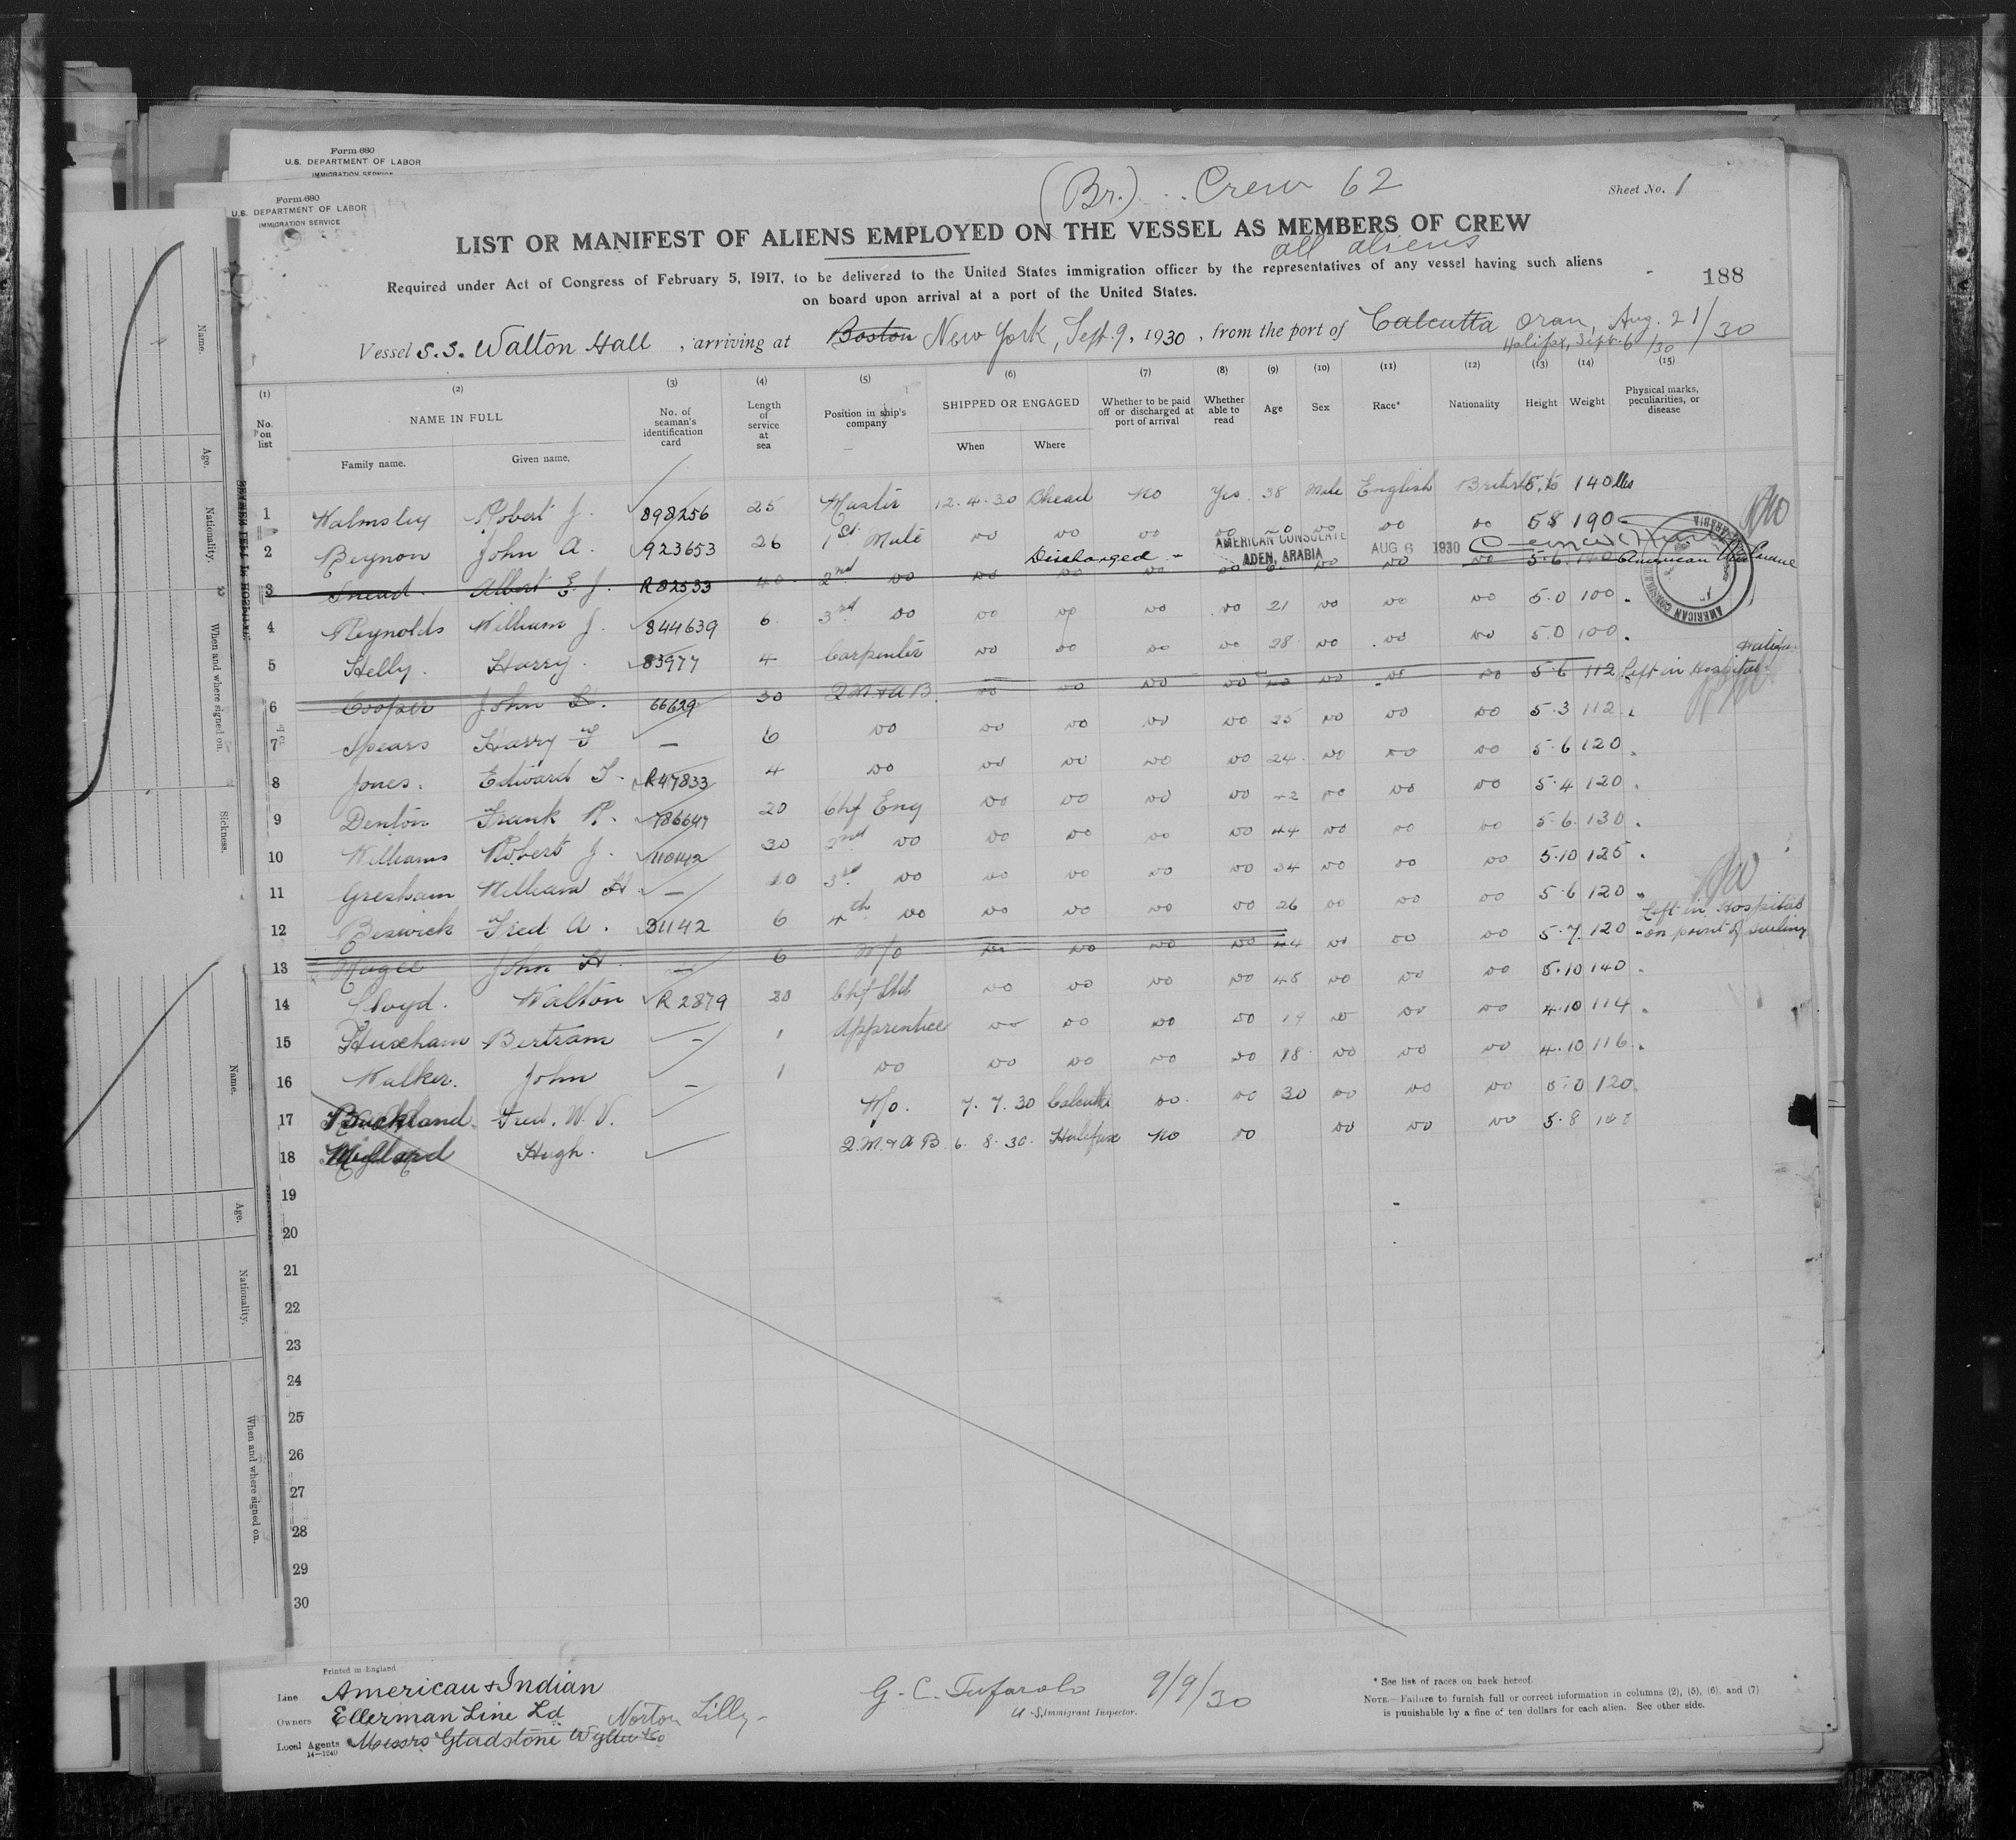 Form 680
U.S. DEPARTMENT OF LABOR
IMMIGRATION SERVICE
Form 680
U.S. DEPARTMENT OF LABOR
IMMIGRATION SERVICE
(Br.) Crew 62
Sheet No. 1
LIST OR MANIFEST OF ALIENS EMPLOYED ON THE VESSEL AS MEMBERS OF CREW
all aliens
Required under Act of Congress of February 5, 1917, to be delivered to the United States immigration officer by the representatives of any vessel having such aliens
on board upon arrival at a port of the United States.
188
Vessel S.S. Walton Hall, arriving at Boston New York, Sept. 9, 1930, from the port of Calcutta Oran, Aug. 21/30
Halifax, Sept. 6/30
(1) (2) (3) (4) (5) (6) (7) (8) (9) (10) (11) (12) (13) (14) (15)
No. on list NAME IN FULL No. of seaman's identification card Length of service at sea Position in ship's company SHIPPED OR ENGAGED Whether to be paid off or discharged at port of arrival Whether able to read Age Sex Race* Nationality Height Weight Physical marks, peculiarities, or disease
Family name. Given name. When Where
1 Walmsley Robert J. 898256 25 Master 12.4.30 Bhead No Yes 38 Male English British 5.6 140 lbs
2 Beynon John A. 923653 26 1st Mate do do do do do do do 5 8 190
Discharged - AMERICAN CONSULATE ADEN, ARABIA AUG 6 1930
3 Snead Albert E. J. R82533 40 2nd do do do do do do do do 5.6 American Vice Consul
4 Reynolds William J. 844639 6 3rd do do do do do 21 do do do 5.0 100
5 Helly. Harry. 83977 4 Carpenter do do do do 28 do do do 5.0 100
6 Cooper John 66629 30 Q M & A B do do do do do do do 5.6 112 Left in Hospital Halifax
7 Spears Harry F — 6 do do do do do 25 do do do 5.3 112
8 Jones. Edward T. R47833 4 do do do do do 24 do do do 5.6 120
9 Denton Frank R. 786647 20 Chf Eng do do do do 42 do do do 5.4 120
10 Williams Robert J. 110142 30 2nd do do do do do 44 do do do 5.6 130
11 Gresham William H — 10 3rd do do do do do 34 do do do 5.10 125
12 Beswick Fred A. 31142 6 4th do do do do do 26 do do do 5.6 120
13 Magee John H — 6 W/o do do do do 44 do do do 5.7 120 Left in Hospital on point of sailing
14 Lloyd. Walton R 2879 20 Chf Std do do do do 45 do do do 5.10 140
15 Huxham Bertram — 1 Apprentice do do do do 19 do do do 4.10 114
16 Walker. John — 1 do do do do do 18 do do do 4.10 116
17 Buckland Fred. W. V. W/o. 7.7.30 Calcutta do do 30 do do do 5.0 120
18 Hugh. Q.M. & A B 6.8.30. Halifax No do do do do 5.8
19
20
21
22
23
24
25
26
27
28
29
30
Printed in England
Line American & Indian
Owners Ellerman Line Ld Norton Lilly
Local Agents Messrs Gladstone Wyllie & Co
14—1240
G. C. Tufarolo 9/9/30
U.S. Immigrant Inspector.
* See list of races on back hereof.
NOTE.—Failure to furnish full or correct information in columns (2), (5), (6), and (7)
is punishable by a fine of ten dollars for each alien. See other side.
Name.
Age.
Nationality.
When and where signed on.
Sickness.
Name.
Age.
Nationality.
When and where signed on.